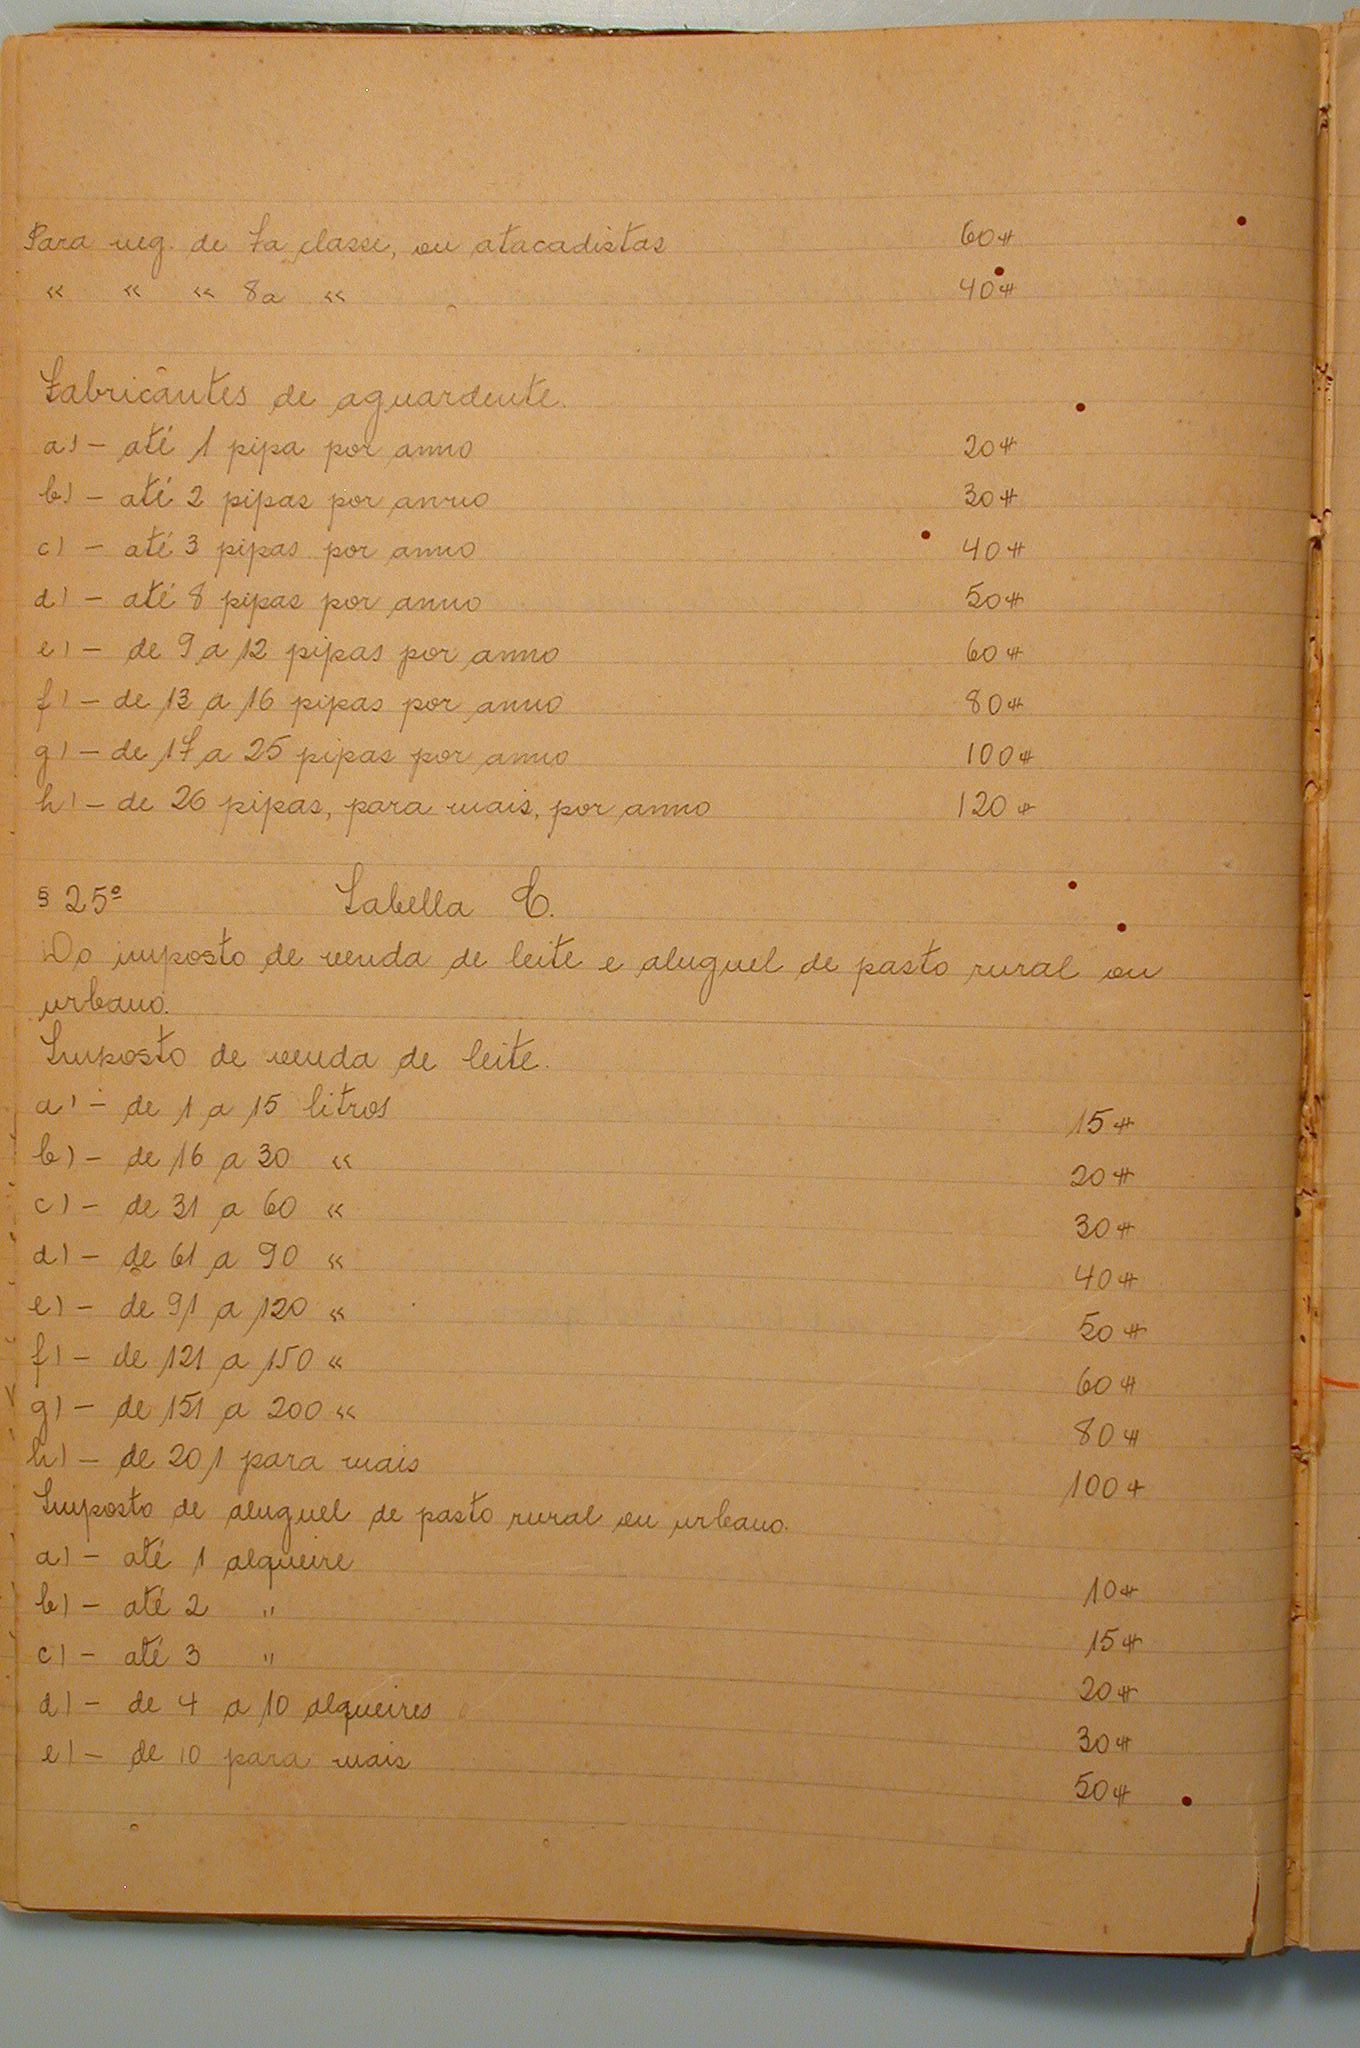 Para neg. de 7a classe, ou atacadistas 60$
" " " 8a " 40$
Fabricantes de aguardente.
a) - até 1 pipa por anno 20$
b) - até 2 pipas por anno 30$
c) - até 3 pipas por anno 40$
d) - até 8 pipas por anno 50$
e) - de 9 a 12 pipas por anno 60$
f) - de 13 a 16 pipas por anno 80$
g) - de 17 a 25 pipas por anno 100$
h) - de 26 pipas, para mais, por anno 120$
§ 25º Tabella C.
Do imposto de venda de leite e aluguel de pasto rural ou
urbano.
Imposto de venda de leite.
a) - de 1 a 15 litros 15$
b) - de 16 a 30 " 20$
c) - de 31 a 60 " 30$
d) - de 61 a 90 " 40$
e) - de 91 a 120 " 50$
f) - de 121 a 150 " 60$
g) - de 151 a 200 " 80$
h) - de 201 para mais 100$
Imposto de aluguel de pasto rural ou urbano.
a) - até 1 alqueire 10$
b) - até 2 " 15$
c) - até 3 " 20$
d) - de 4 a 10 alqueires 30$
e) - de 10 para mais 50$